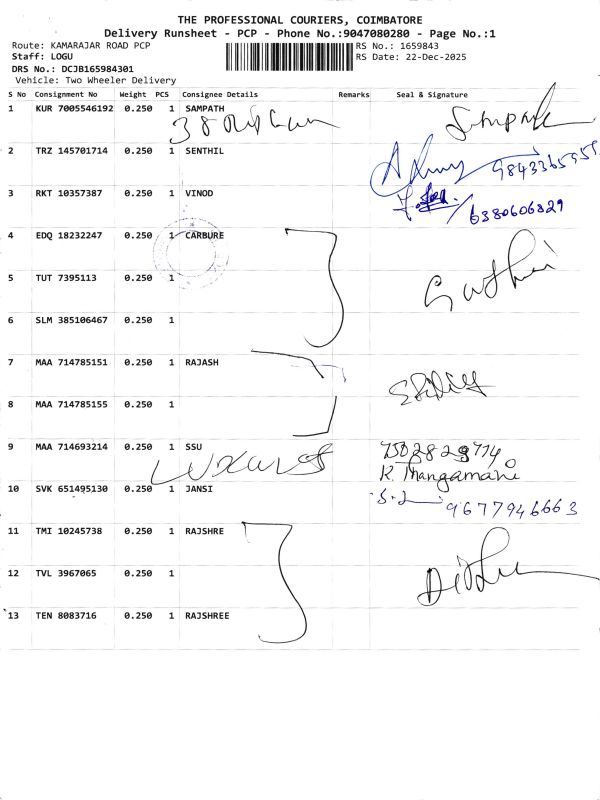 THE PROFESSIONAL COURIERS, COIMBATORE
Delivery Runsheet - PCP - Phone No.:9047080280 - Page No.:1
Route: KAMARAJAR ROAD PCP RS No.: 1659843
Staff: LOGU RS Date: 22-Dec-2025
DRS No.: DCJB165984301
Vehicle: Two Wheeler Delivery
S No Consignment No Weight PCS Consignee Details Remarks Seal & Signature
1 KUR 7005546192 0.250 1 SAMPATH
2 TRZ 145701714 0.250 1 SENTHIL
3 RKT 10357387 0.250 1 VINOD
6380606829
4 EDQ 18232247 0.250 1 CARBURE
5 TUT 7395113 0.250 1
6 SLM 385106467 0.250 1
7 MAA 714785151 0.250 1 RAJASH
8 MAA 714785155 0.250 1
9 MAA 714693214 0.250 1 SSU
K. Thangamani
10 SVK 651495130 0.250 1 JANSI
9677946663
11 TMI 10245738 0.250 1 RAJSHRE
12 TVL 3967065 0.250 1
13 TEN 8083716 0.250 1 RAJSHREE